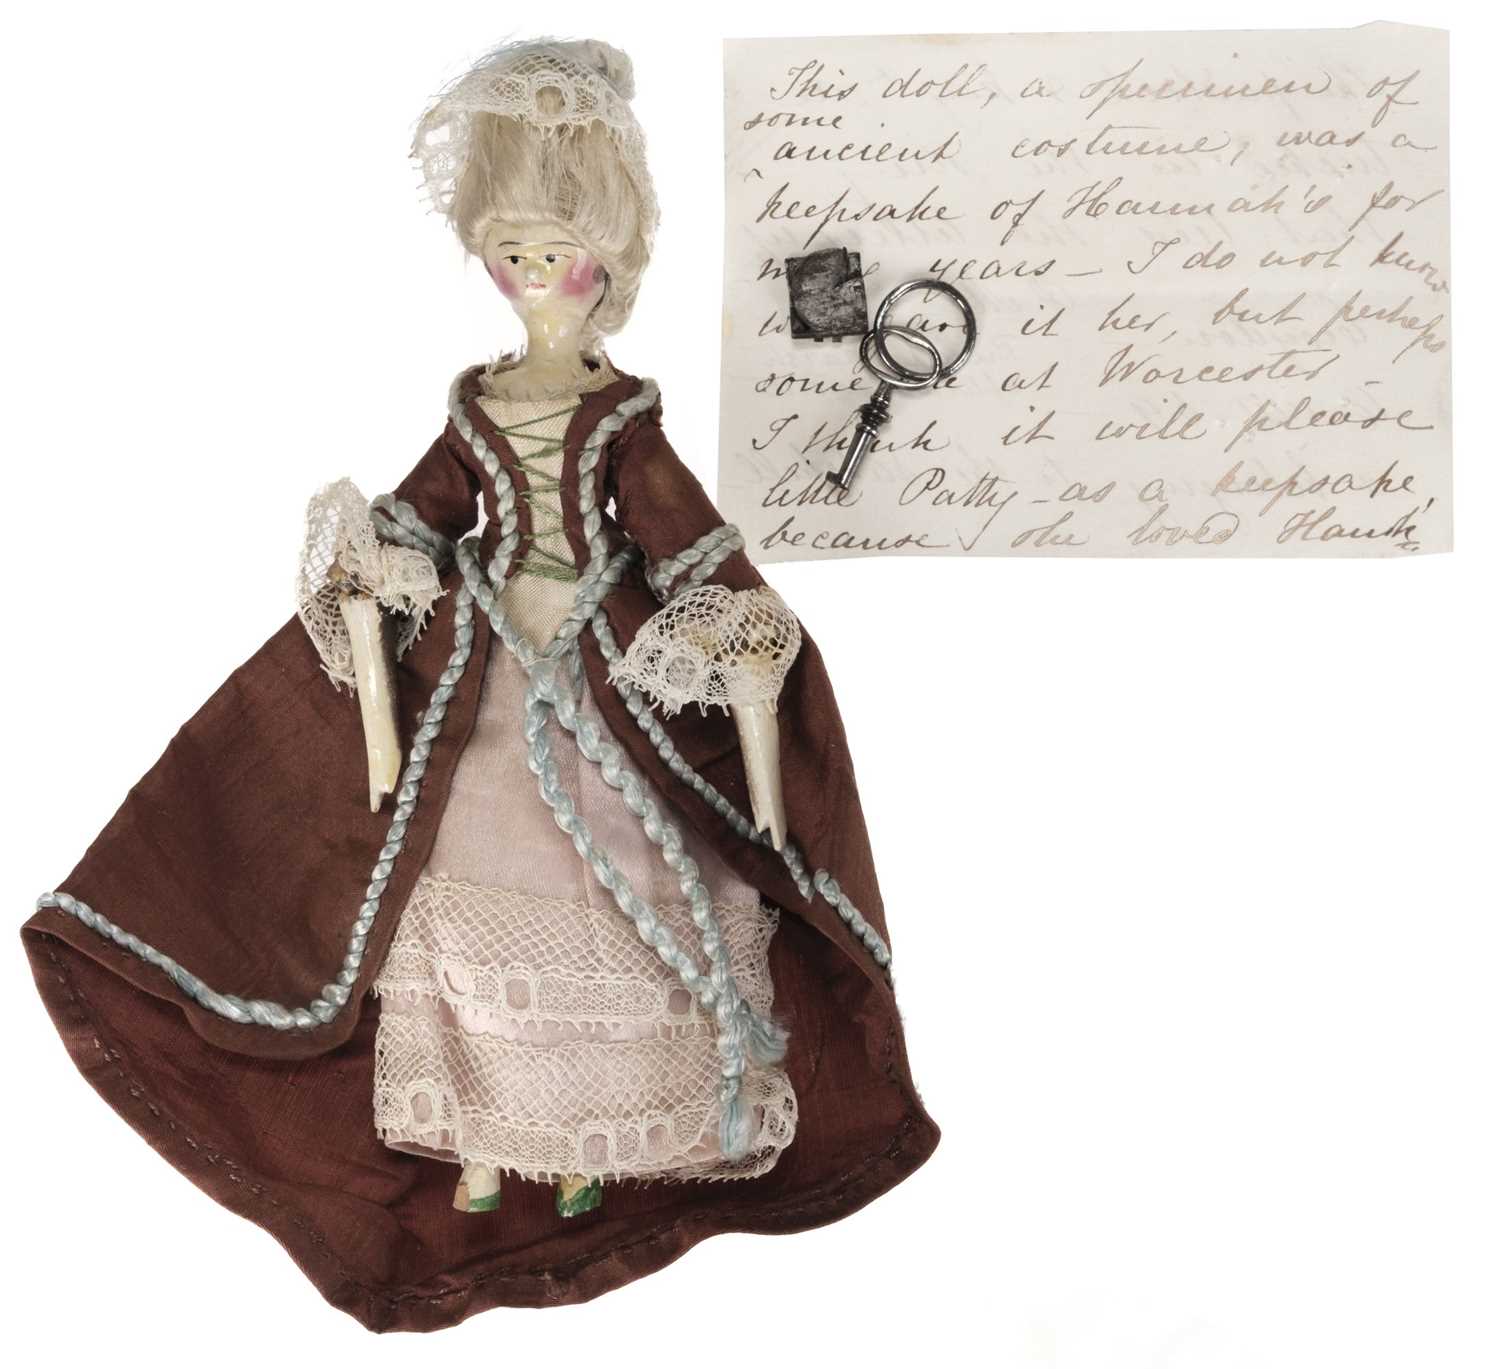 This doll, a specimen of
some
ancient costume, was a
keepsake of Hannah's for
years – I do not know
it her, but perhaps
some at Worcester –
I think it will please
little Patty – as a keepsake,
because she loved Hanh